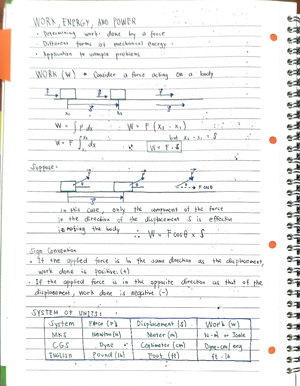 WORK, ENERGY, AND POWER
• Determining work done by a force
• Different forms of mechanical energy
• Application to sample problems
WORK (W) → Consider a force acting on a body
F F
S
x₁ x₂
W = ∫ F dx W = F (x₂ - x₁)
W = F ∫ dx but x₂ - x₁ = S
W = F · S
Suppose:
F F F
θ θ θ F cos θ
S
in this case, only the component of the force
in the direction of the displacement S is effective
in moving the body ∴ W = F cos θ × S
Sign Convention
• If the applied force is in the same direction as the displacement,
work done is positive. (+)
• If the applied force is in the opposite direction as that of the
displacement, work done is negative (-)
SYSTEM OF UNITS:
System Force (F) Displacement (S) Work (W)
MKS Newton (N) Meter (m) N-m or Joule
CGS Dyne Centimeter (cm) Dyne-cm / erg
ENGLISH Pound (lb) Foot (ft) ft - lb